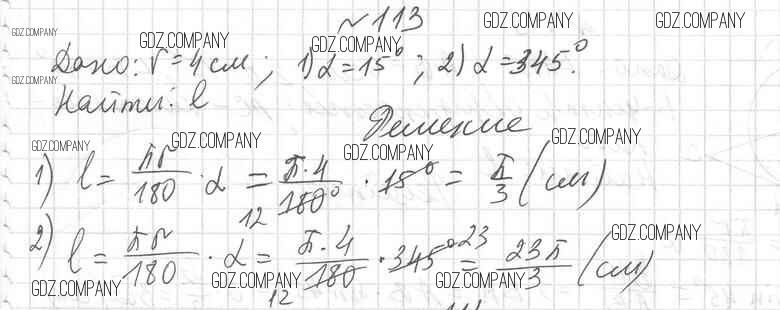 № 113
GDZ.COMPANY GDZ.COMPANY
GDZ.COMPANY GDZ.COMPANY GDZ.COMPANY
Дано: r = 4 см; 1) α = 15°; 2) α = 345°.
GDZ.COMPANY
Найти: l
Решение
GDZ.COMPANY GDZ.COMPANY GDZ.COMPANY GDZ.COMPANY
1) l = πr/180 · α = π·4/180° · 15° = π/3 (см)
12
GDZ.COMPANY
2) l = πr/180 · α = π·4/180 · 345° 23 = 23π/3 (см)
12
GDZ.COMPANY GDZ.COMPANY GDZ.COMPANY